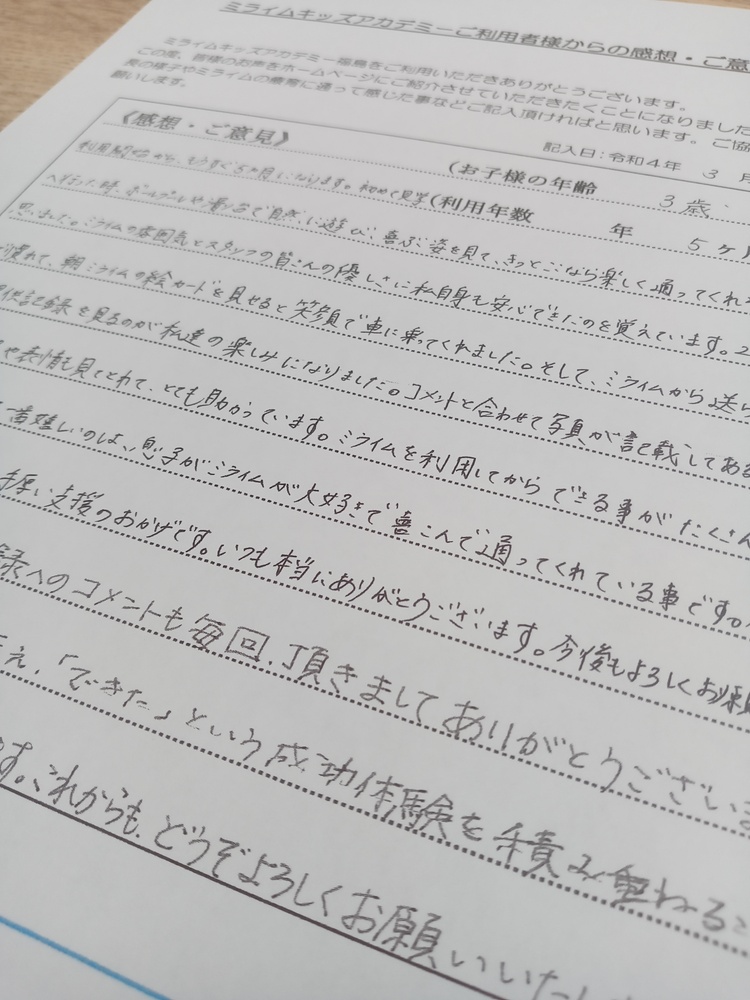 ミライムキッズアカデミーご利用者様からの感想・ご意
ミライムキッズアカデミー福島をご利用いただきありがとうございます。
この度、皆様のお声をホームページにご紹介させていただきたくことになりました
見の様子やミライムの療育に通って感じた事などご記入頂ければと思います。ご協
願いします。
記入日：令和4年 3 月
《感想・ご意見》 (お子様の年齢 3歳
(利用年数 年 5ヶ月
利用開始から、もうすぐ5ヶ月になります。初めて見学
へ行った時、ボールプールや滑り台で自然に遊び、喜ぶ姿を見て、きっとここなら楽しく通ってくれる
思いました。ミライムの雰囲気とスタッフの皆さんの優しさに私自身も安心できたのを覚えています。
慣れて、朝ミライムの絵カードを見せると笑顔で車に乗ってくれました。そして、ミライムから送ら
供記録を見るのが私達の楽しみになりました。コメントと合わせて写真が記載してある
や表情も見てとれて、とても助かっています。ミライムを利用してからできる事がたくさん
一番嬉しいのは、息子がミライムが大好きで喜こんで通ってくれている事です。
手厚い支援のおかげです。いつも本当にありがとうございます。今後もよろしくお願
録へのコメントも毎回、頂きましてありがとうございま
え、「できた」という成功体験を積み重ねる
す。これからも、どうぞよろしくお願いいたし